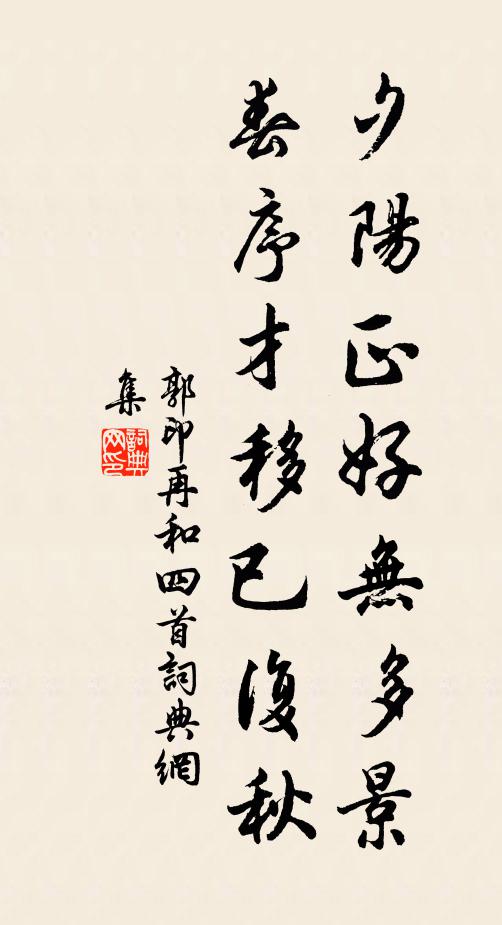 夕陽正好無多景
春序才移已復秋
郭印再和四首詞典網
集
詞典
网印